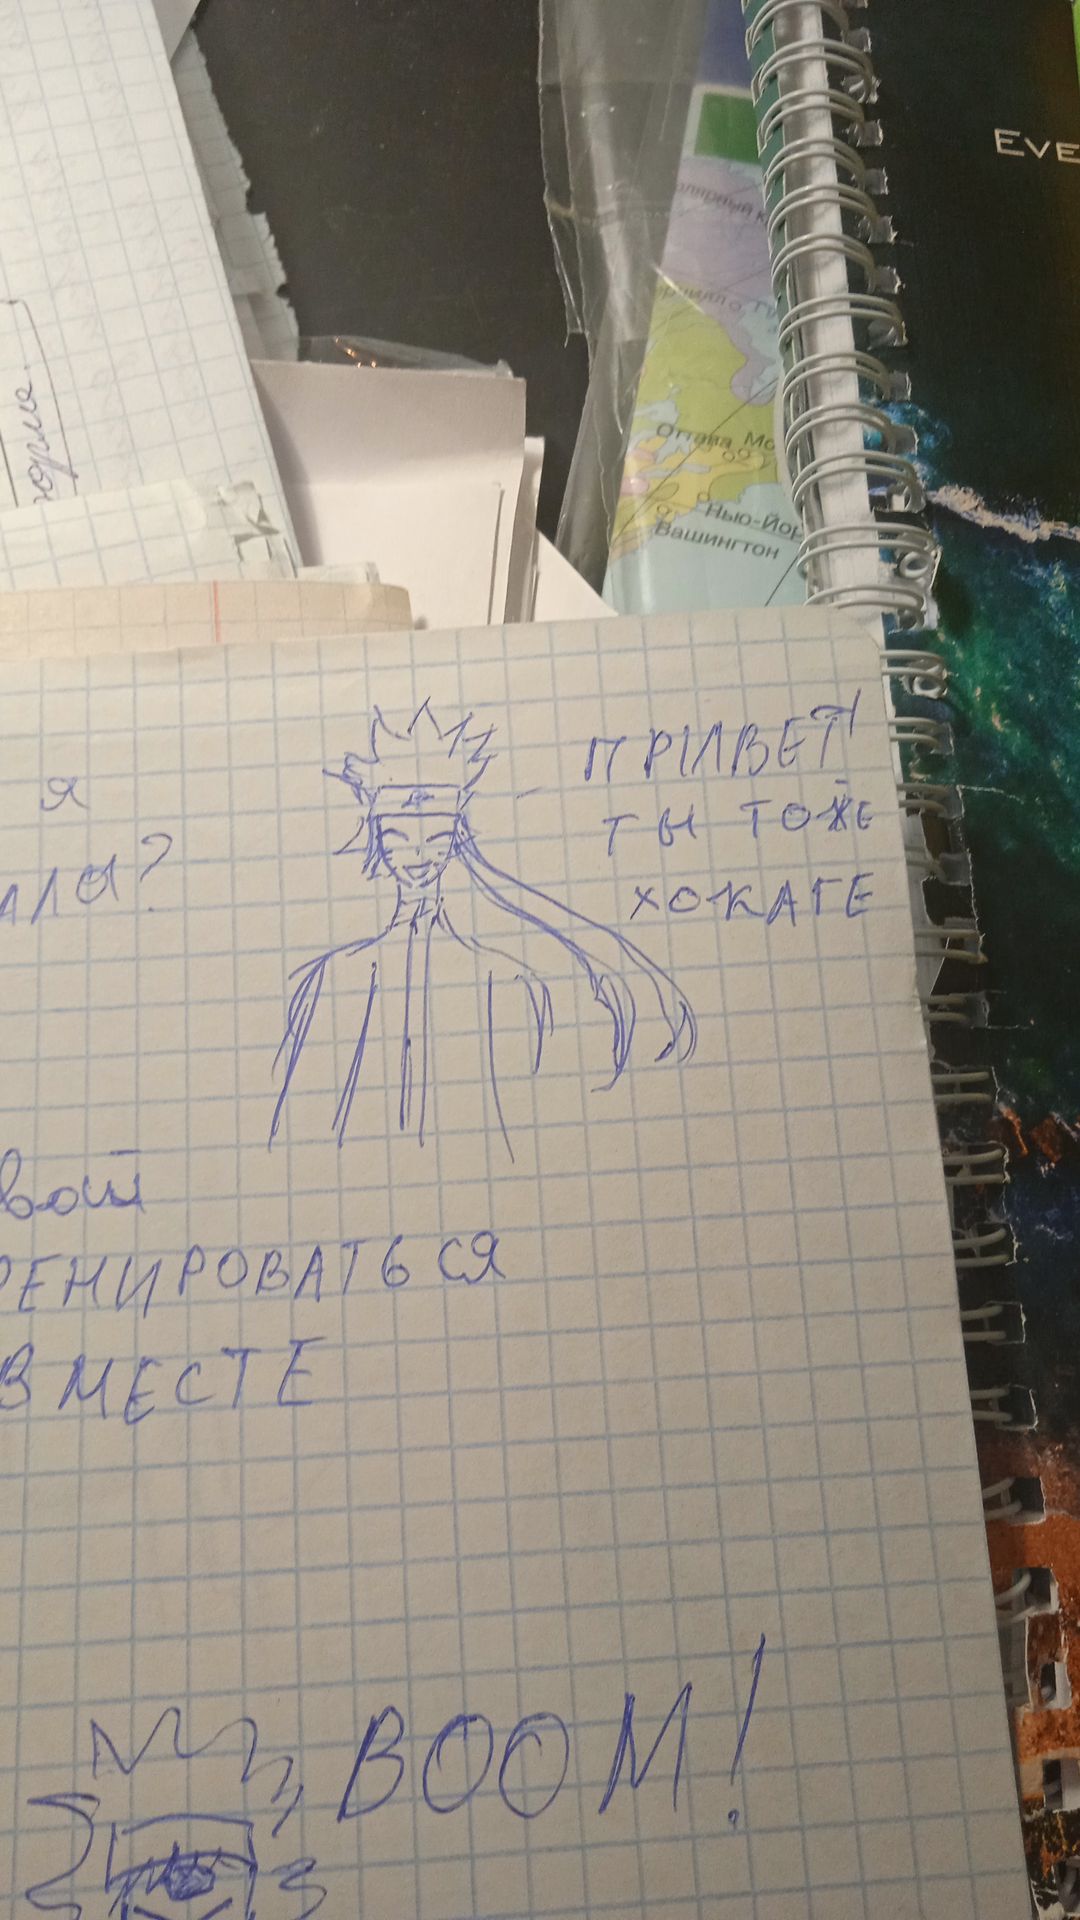 EVE
Оттава Мо
Нью-Йор
Вашингтон
норме.
я
ПРИВЕТ!
ТЫ ТОЖЕ
ХОКАГЕ
ала?
вой
РЕНИРОВАТЬСЯ
ВМЕСТЕ
BOOM!